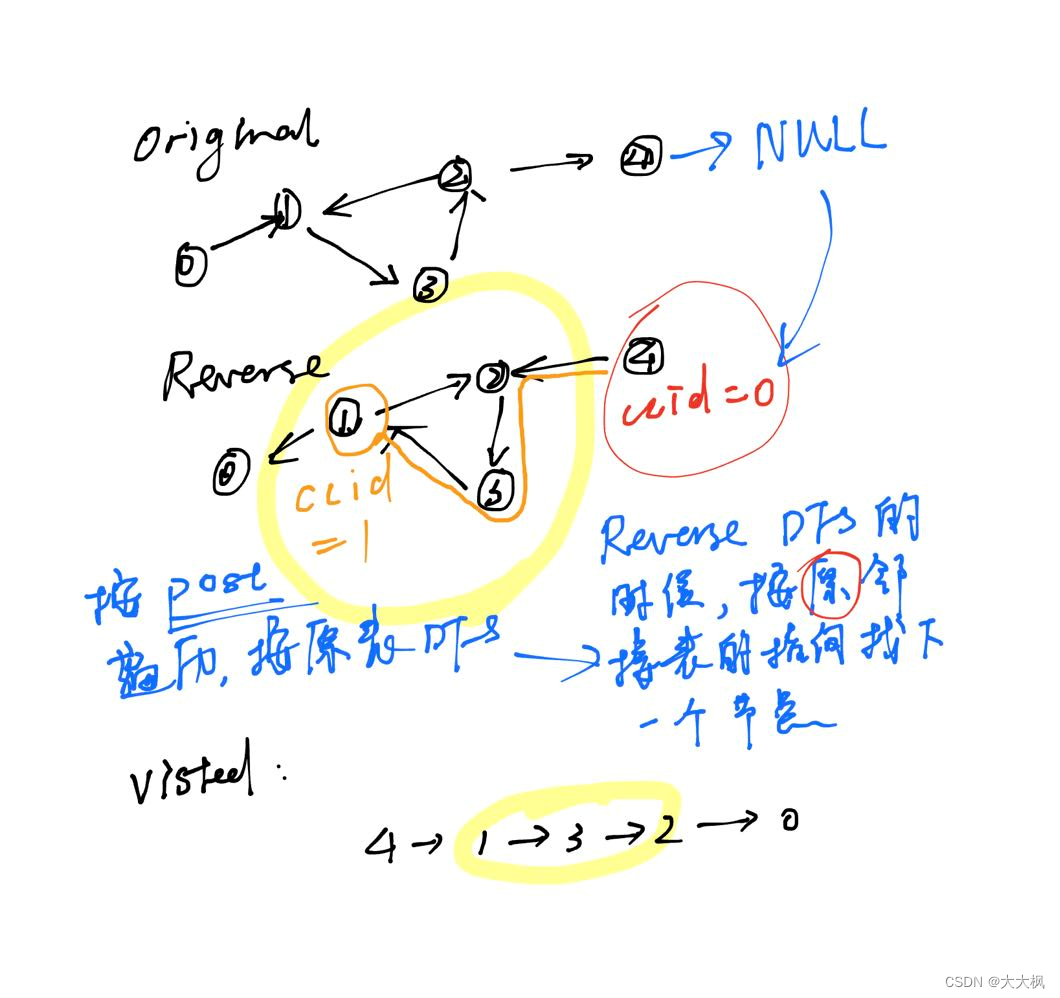 Original
NULL
2
4
1
0
3
Reverse
2
4
ccid=0
1
0
3
ccid
=1
Reverse DFS 的
时候，按原邻
接表的指向找下
一个节点
按 post
遍历，按原表 DFS
Visted:
4 → 1 → 3 → 2 → 0
CSDN @大大枫